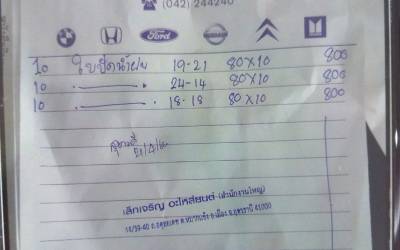 ☎ (042) 244240
Ford NISSAN
10 ใบปัดน้ำฝน 19-21 80x10 800
10 " 24-14 80x10 800
10 " 18-18 80x10 800
เล็กเจริญ อะไหล่ยนต์-(สำนักงานใหญ่)
อ.เมือง จ.อุดรธานี 41000